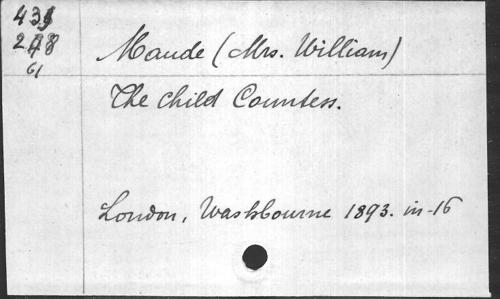 Maude (Mrs. William)
61
The child Countess.
London, Washbourne 1893. in-16